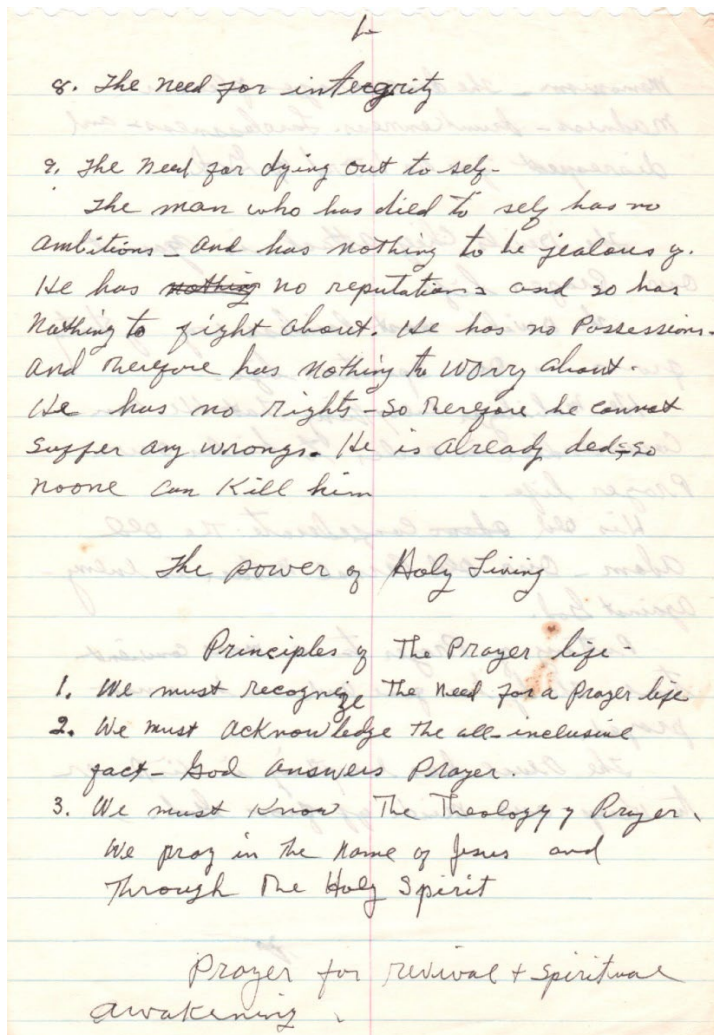 8. The need for integrity
9. The need for dying out to self-
The man who has died to self has no
ambitions - and has nothing to be jealous of.
He has nothing no reputations and so has
nothing to fight about. He has no Possessions-
and therefore has nothing to worry about.
He has no rights - so therefore he cannot
suffer any wrongs. He is already ded - so
noone can kill him
The power of Holy Living
Principles of The Prayer life -
1. We must recognize the need for a Prayer life
2. We must acknowledge the all-inclusive
fact - God answers Prayer.
3. We must know The Theology of Prayer.
We pray in the name of Jesus and
Through the Holy Spirit
Prayer for revival + spiritual
awakening.